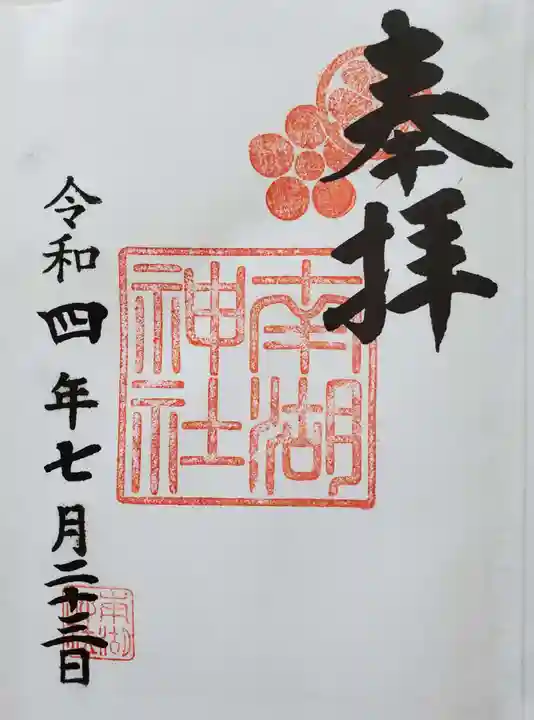 奉拝
南湖
神社
令和四年七月二十三日
南湖